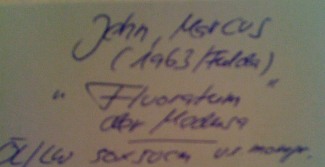 John, Marcus
(1963/Fulda)
"Fluoratum
der Medusa"
Öl/LW 50x50cm